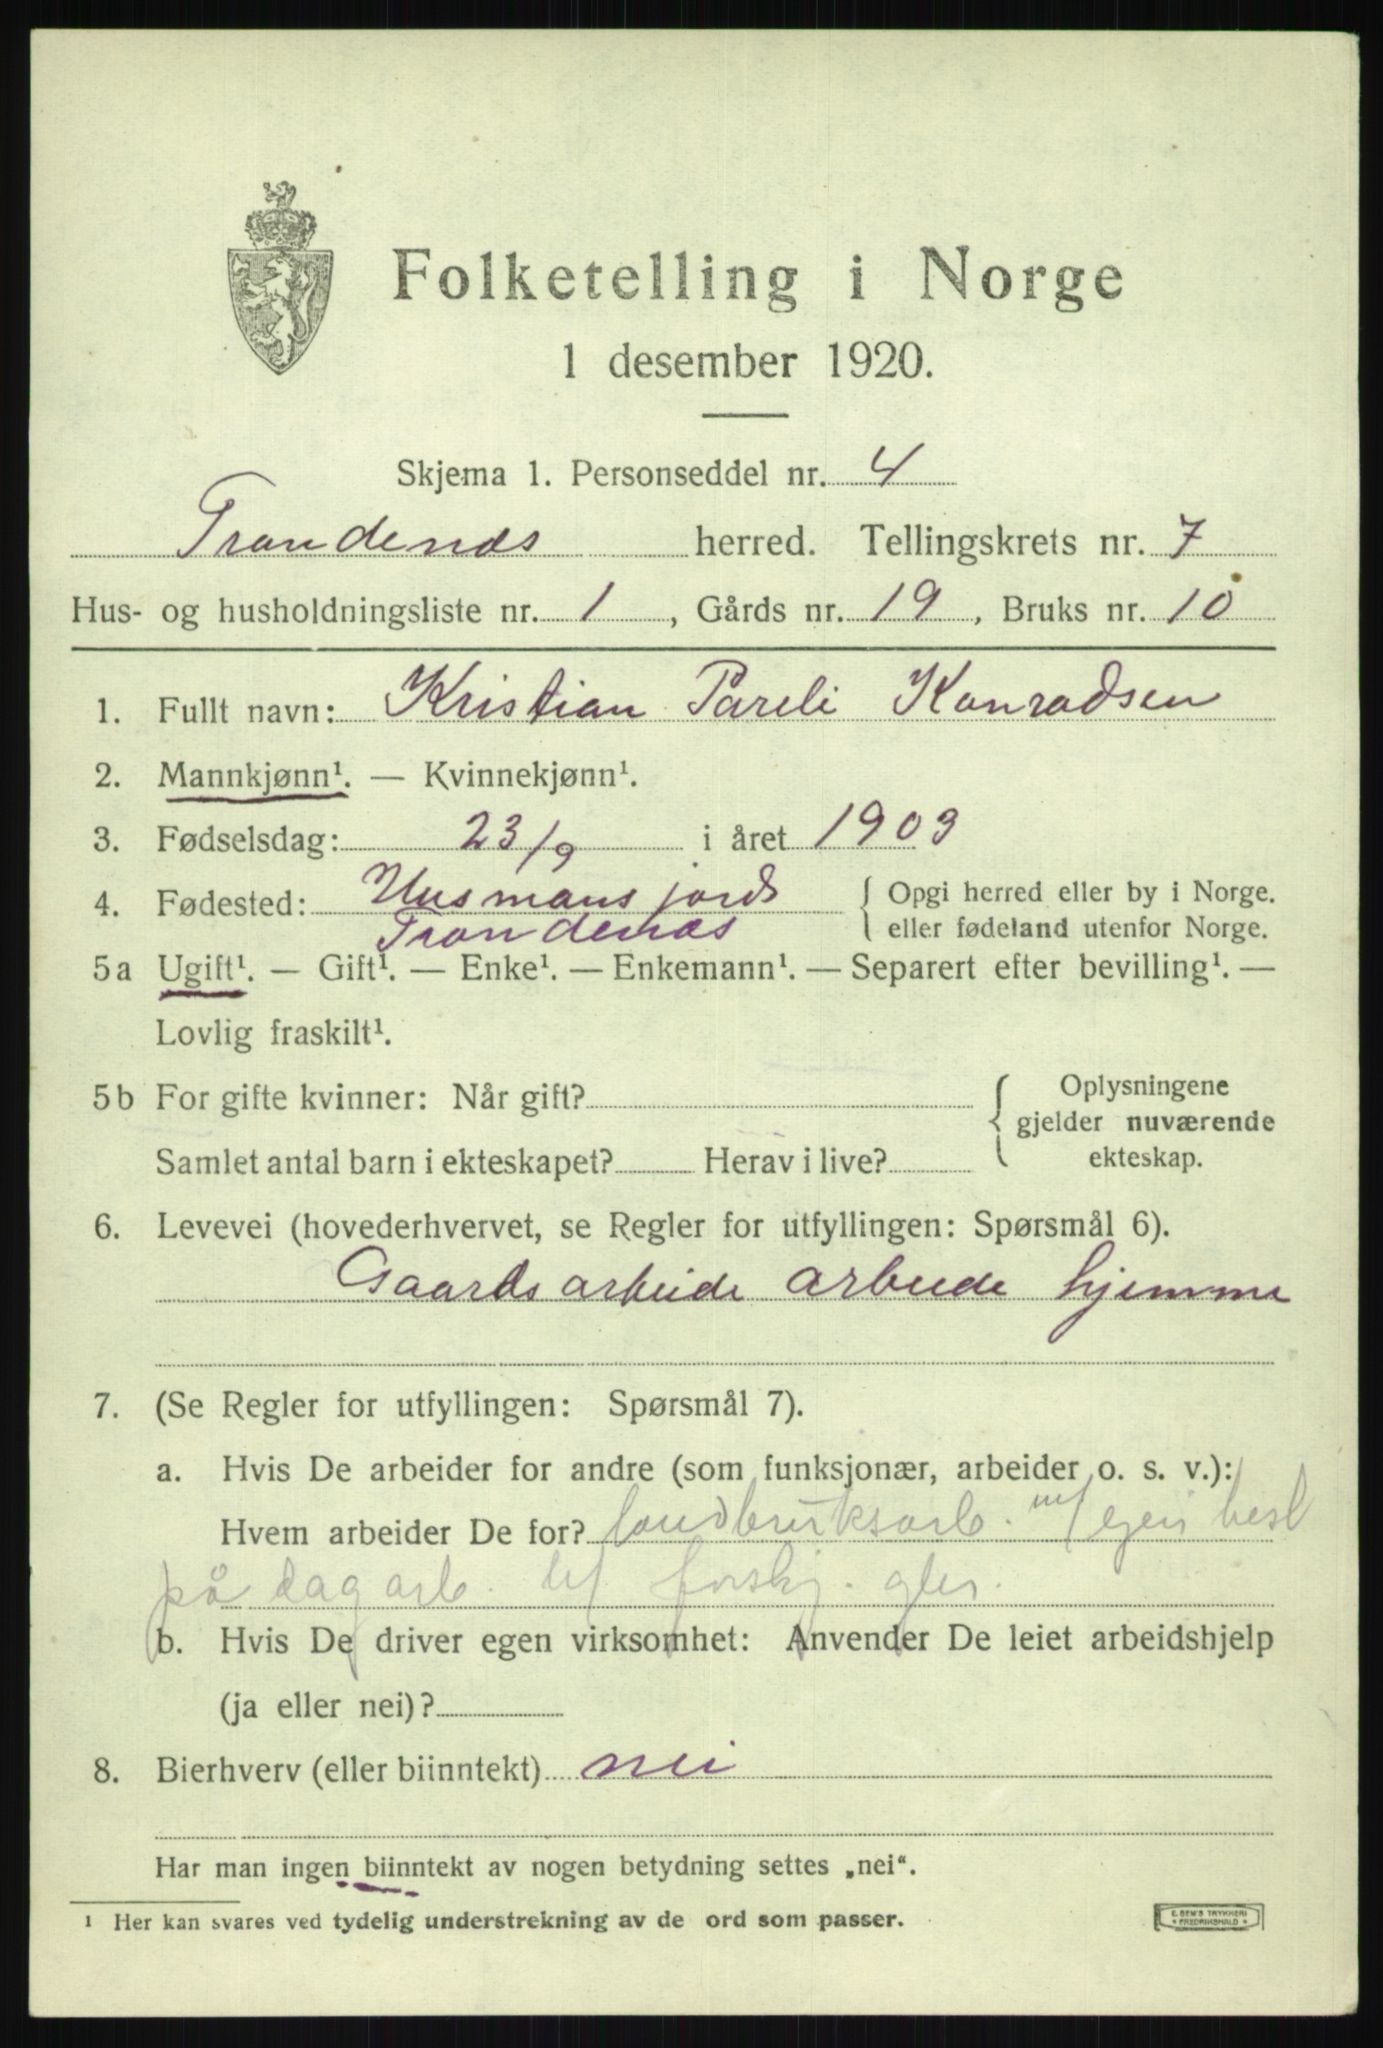 Folketelling i Norge
1 desember 1920.
Skjema 1. Personseddel nr. 4
Trondenæs herred. Tellingskrets nr. 7
Hus- og husholdningsliste nr. 1, Gårds nr. 19, Bruks nr. 10
1. Fullt navn: Kristian Pareli Konradsen
2. Mannkjønn¹. — Kvinnekjønn¹.
3. Fødselsdag: 23/9 i året 1903
4. Fødested: Husmans jord { Opgi herred eller by i Norge.
Trondenæs eller fødeland utenfor Norge.
5a Ugift¹. — Gift¹. — Enke¹. — Enkemann¹. — Separert efter bevilling¹. —
Lovlig fraskilt¹.
5b For gifte kvinner: Når gift? { Oplysningene
gjelder nuværende
Samlet antal barn i ekteskapet? Herav i live? ekteskap.
6. Levevei (hovederhvervet, se Regler for utfyllingen: Spørsmål 6).
Gaards arbeide arbeide hjemme
7. (Se Regler for utfyllingen: Spørsmål 7).
a. Hvis De arbeider for andre (som funksjonær, arbeider o. s. v.):
Hvem arbeider De for? landbruksarb. m/ egen
på dagarb. forskj.
b. Hvis De driver egen virksomhet: Anvender De leiet arbeidshjelp
(ja eller nei)?
8. Bierhverv (eller biinntekt) nei
Har man ingen biinntekt av nogen betydning settes „nei“.
¹ Her kan svares ved tydelig understrekning av de ord som passer.
E. SEM'S TRYKKERI
FREDRIKSHALD